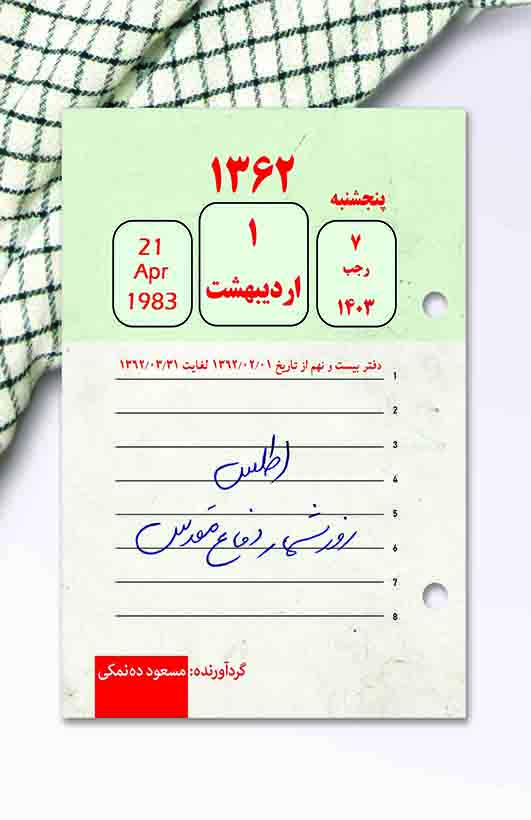 ۱۳۶۲
پنجشنبه
۷
رجب
۱۴۰۳
۱
اردیبهشت
21
Apr
1983
دفتر بیست و نهم از تاریخ ۱۳۶۲/۰۲/۰۱ لغایت ۱۳۶۲/۰۳/۳۱
1
2
3
اطلس
4
5
روزشمار دفاع مقدس
6
7
8
گردآورنده: مسعود ده‌نمکی